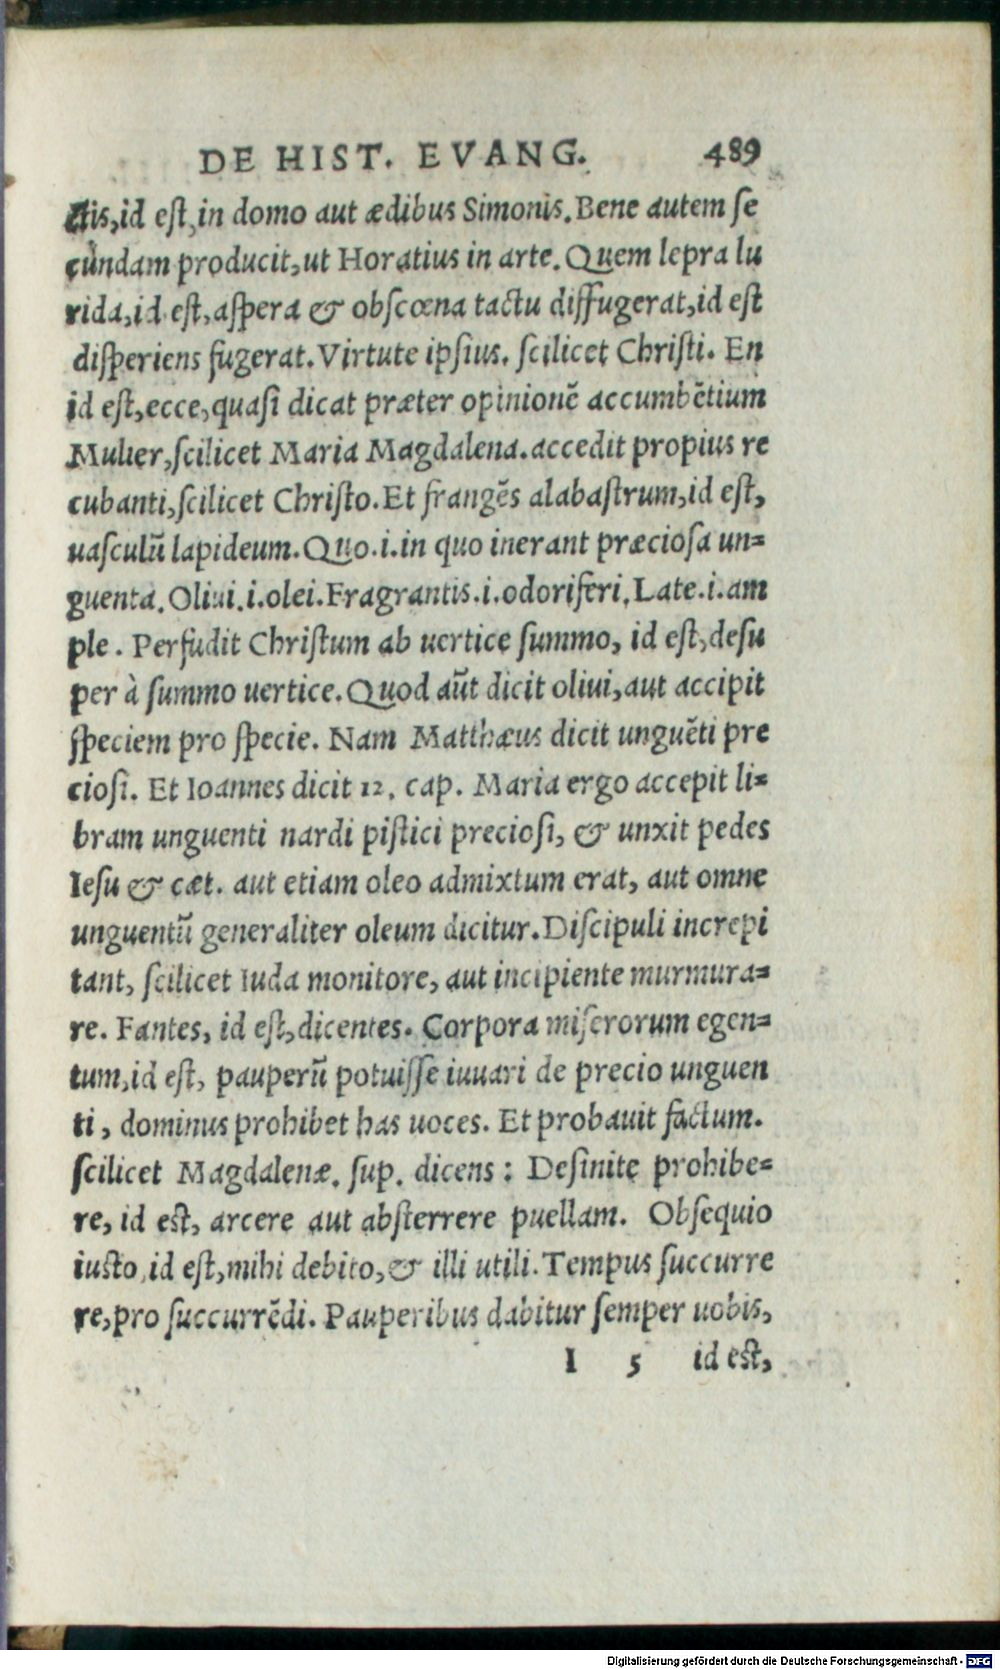 DE HIST. EVANG. 489
ctis, id est, in domo aut ædibus Simonis. Bene autem se
cundam producit, ut Horatius in arte. Quem lepra lu
rida, id est, aspera & obscœna tactu diffugerat, id est
disperiens fugerat. Virtute ipsius. scilicet Christi. En
id est, ecce, quasi dicat præter opinionē accumbētium
Mulier, scilicet Maria Magdalena. accedit propius re
cubanti, scilicet Christo. Et frangēs alabastrum, id est,
uasculū lapideum. Quo .i. in quo inerant præciosa un=
guenta. Oliui .i. olei. Fragrantis .i. odoriferi. Late .i. am
ple. Perfudit Christum ab uertice summo, id est, desu
per à summo uertice. Quod aūt dicit oliui, aut accipit
speciem pro specie. Nam Matthæus dicit unguēti pre
ciosi. Et Ioannes dicit 12. cap. Maria ergo accepit li=
bram unguenti nardi pistici preciosi, & unxit pedes
Iesu & cæt. aut etiam oleo admixtum erat, aut omne
unguentū generaliter oleum dicitur. Discipuli increpi
tant, scilicet Iuda monitore, aut incipiente murmura=
re. Fantes, id est, dicentes. Corpora miserorum egen=
tum, id est, pauperū potuisse iuuari de precio unguen
ti, dominus prohibet has uoces. Et probauit factum.
scilicet Magdalenæ. sup. dicens: Desinite prohibe=
re, id est, arcere aut absterrere puellam. Obsequio
iusto, id est, mihi debito, & illi utili. Tempus succurre
re, pro succurrēdi. Pauperibus dabitur semper uobis,
I 5 id est,
Digitalisierung gefördert durch die Deutsche Forschungsgemeinschaft - DFG